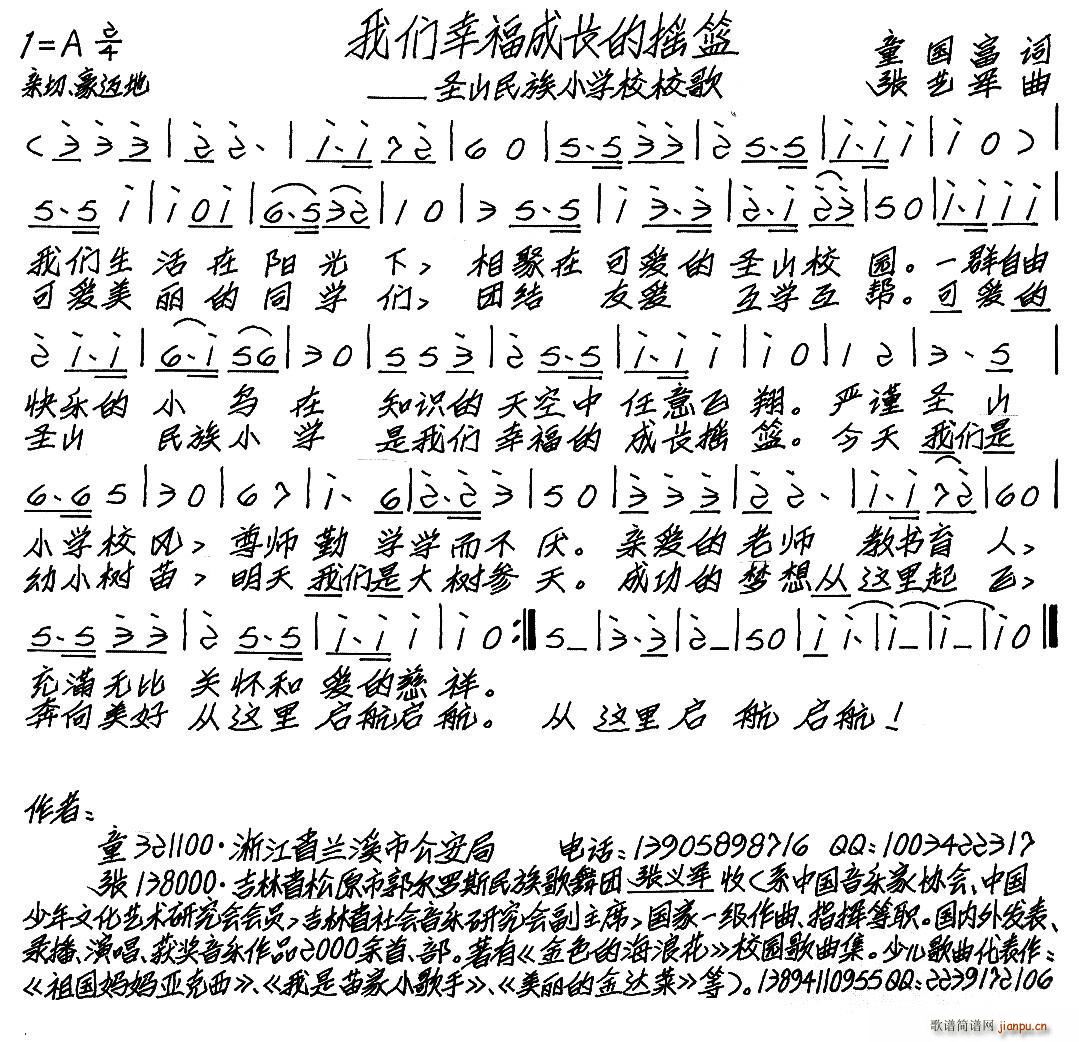 我们幸福成长的摇篮
1=A 2/4
童国富 词
亲切、豪迈地
——圣山民族小学校校歌
张艺军 曲
我们生活在阳光下，相聚在可爱的圣山校园。一群自由
可爱美丽的同学们，团结友爱互学互帮。可爱的
快乐的小鸟在知识的天空中任意飞翔。严谨圣山
圣山民族小学是我们幸福的成长摇篮。今天我们是
小学校风，尊师勤学学而不厌。亲爱的老师教书育人，
幼小树苗，明天我们是大树参天。成功的梦想从这里起飞，
充满无比关怀和爱的慈祥。
奔向美好从这里启航启航。从这里启航启航！
作者：
童321100·浙江省兰溪市公安局 电话：13905898716 QQ：1003422317
张138000·吉林省松原市郭尔罗斯民族歌舞团张义军收（系中国音乐家协会、中国
少年文化艺术研究会会员，吉林省社会音乐研究会副主席，国家一级作曲、指挥等职。国内外发表、
录播、演唱、获奖音乐作品2000余首、部。著有《金色的海浪花》校园歌曲集。少儿歌曲代表作：
《祖国妈妈亚克西》、《我是苗家小歌手》、《美丽的金达莱》等）。13894110955QQ：2239172106
歌谱简谱网 jianpu.cn